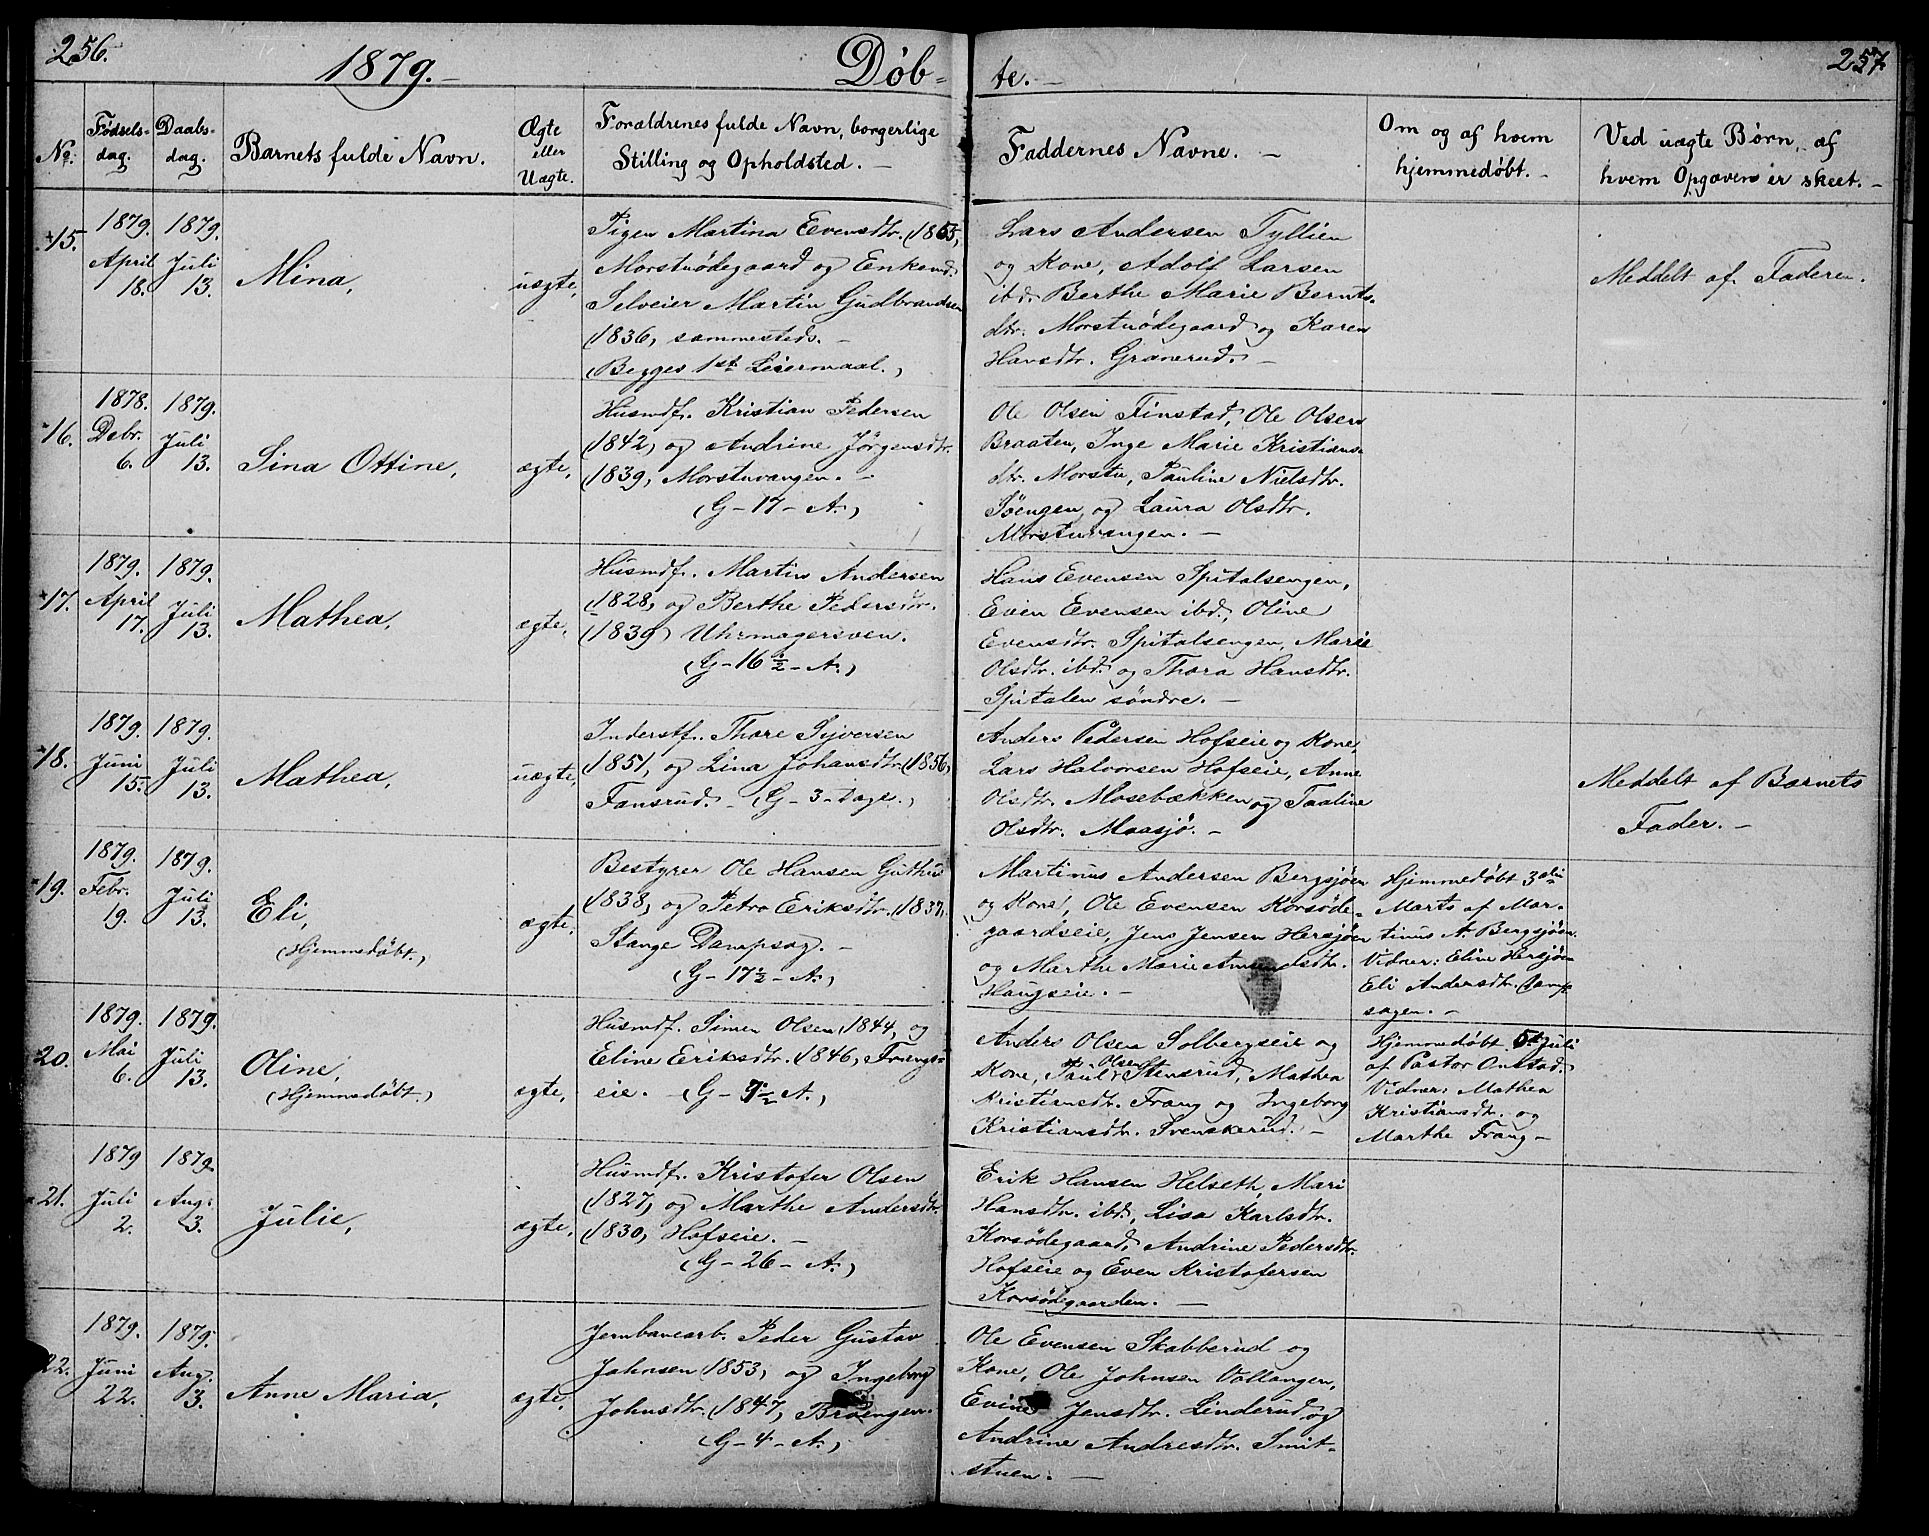 256.
1879.
Døb-
te.
257.
No.
Fødsels-
dag.
Daabs-
dag.
Barnets fulde Navn.
Ægte
eller
Uægte.
Forældrenes fulde Navn, borgerlige
Stilling og Opholdsted.
Faddernes Navne.
Om og af hvem
hjemmedøbt.
Ved uægte Børn, af
hvem Opgaven er skeet.
15.
1879.
April
18.
1879.
Juli
13.
Mina,
uægte,
Pigen Martina Evensdtr. (1855,
Morstuødegaard og Enkemd.
Selveier Martin Gudbrandsen
(1836, sammesteds.
(Begges 1st Leiermaal.)
Lars Andersen Tyllien
og Kone, Adolf Larsen
ibd. Berthe Marie Bernts-
dtr. Morstuødegaard og Karen
Hansdtr. Granerud.
Meddelt af Faderen.
16.
1878.
Debr.
6.
1879.
Juli
13.
Sina Ottine,
ægte,
Husmdf. Kristian Pedersen
(1842, og Andrine Jørgensdtr.
(1839, Morstuvangen.
(G-17-A.)
Ole Olsen Finstad, Ole Olsen
Braaten, Inge Marie Kristians-
dtr. Morstu, Pauline Nielsdtr.
Søengen og Laura Olsdtr.
Morstuvangen.
17.
1879.
April
17.
1879.
Juli
13.
Mathea,
ægte,
Husmdf. Martin Andersen
(1828, og Berthe Pedersdtr.
(1839) Uhrmagersven.
(G-16½-A.)
Hans Evensen Spitalsengen,
Even Evensen ibd, Oline
Evensdtr. Spitalsengen, Marie
Olsdtr. ibd. og Thora Hansdtr.
Spitalen søndre.
18.
1879.
Juni
15.
1879.
Juli
13.
Mathea,
uægte,
Inderstf. Thore Syversen
(1851, og Lina Johansdtr. (1856,
Fansrud. (G-3-Dage.)
Anders Pedersen Hofseie og Kone,
Lars Halvorsen Hofseie, Anne
Olsdtr. Mosebækken og Taaline
Olsdtr. Maasjø.
Meddelt af Barnets
Fader.
19.
1879.
Febr.
19.
1879.
Juli
13.
Eli,
(Hjemmedøbt.)
ægte,
Bestyrer Ole Hansen Guthus
(1838, og Petra Eriksdtr. (1837,
Stange Dampsag.
(G-17½-A.)
Martinus Andersen Bergsjøen
og Kone, Ole Evensen Korsøde-
gaardseie, Jens Jensen Hersjøen
og Marthe Marie Amundsdtr.
Haugseie.
Hjemmedøbt 3die
Marts af Mar-
tinus A. Bergsjøen.
Vidner: Eline Hersjøen
Eli Andersdtr. Damp-
sagen.
20.
1879.
Mai
6.
1879.
Juli
13.
Oline,
(Hjemmedøbt.)
ægte,
Husmdf. Simen Olsen (1844, og
Eline Eriksdtr. (1846, Frangs-
eie. (G-7½-A.)
Anders Olsen Solbergseie og
Kone, Paul Olsen Stensrud, Mathea
Kristiansdtr. Frang og Ingeborg
Kristiansdtr. Svenskerud.
Hjemmedøbt 5te Juli
af Pastor Onstad.
Vidner: Mathea
Kristiansdtr. og
Marthe Frang
21.
1879
Juli
2.
1879
Aug.
3.
Julie,
ægte,
Husmdf. Kristofer Olsen
(1827, og Marthe Andersdtr.
(1830, Hofseie.
(G-26-A.)
Erik Hansen Helseth, Mari
Hansdtr. ibd., Lisa Karlsdtr.
Korsødegaard, Andrine Pedersdtr.
Hofseie og Even Kristofersen
Korsødegaarden.
22.
1879.
Juni
22.
1879.
Aug.
3.
Anne Maria,
ægte,
Jernbanearb. Peder Gustav
Johnsen (1853, og Ingeborg
Johnsdtr. (1847, Broengen.
(G-4-A.)
Ole Evensen Skabberud og
Kone, Ole Johnsen Vollangen,
Evine Jensdtr. Linderud og
Andrine Andresdtr. Smit-
stuen.